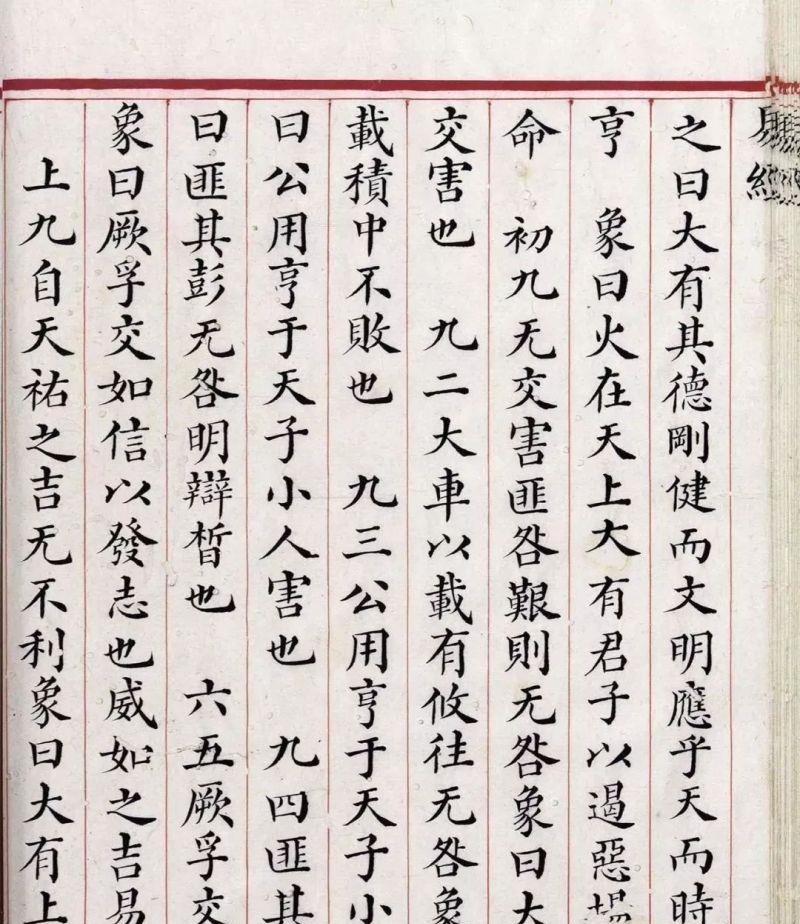 之曰大有其德剛健而文明應乎天而時
亨　象曰火在天上大有君子以遏惡揚
命　初九无交害匪咎艱則无咎象曰大
交害也　九二大車以載有攸往无咎象
載積中不敗也　九三公用亨于天子小
曰公用亨于天子小人害也　九四匪其
曰匪其彭无咎明辯晳也　六五厥孚交
象曰厥孚交如信以發志也威如之吉易
上九自天祐之吉无不利象曰大有上